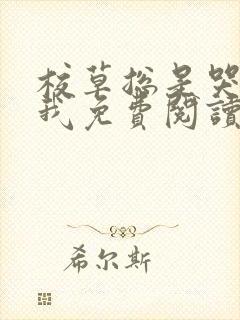 校草總是哭
我免費閱讀
希尔斯